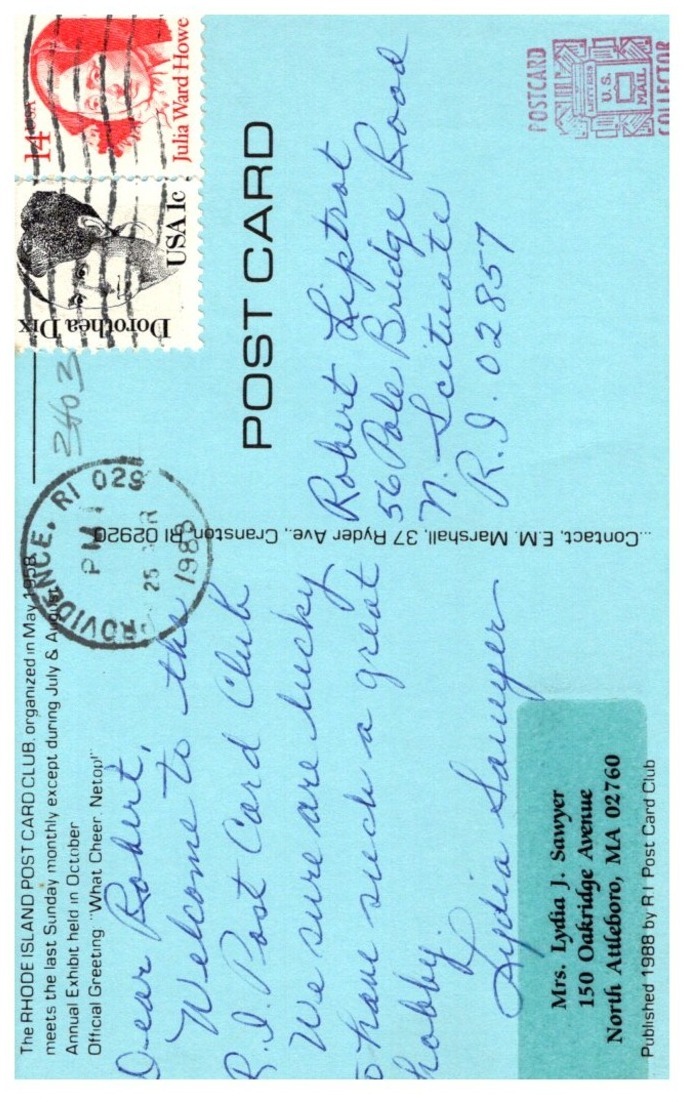 The RHODE ISLAND POST CARD CLUB, organized in May 1958
meets the last Sunday monthly except during July & August
Annual Exhibit held in October
Official Greeting "What Cheer, Netop!"
Dear Robert,
Welcome to the
R.I. Post Card Club
We sure are lucky
to have such a great
hobby.
Lydia Sawyer
Mrs. Lydia J. Sawyer
150 Oakridge Avenue
North Attleboro, MA 02760
Published 1988 by R I Post Card Club
...Contact, E.M. Marshall, 37 Ryder Ave., Cranston, RI 02920
PROVIDENCE, RI 029
PM
25
1988
2403
Dorothea Dix
USA 1c
14 USA
Julia Ward Howe
POST CARD
Robert Liptrot
56 Pole Bridge Road
N. Scituate
R.I. 02857
POSTCARD
LETTERS
U.S.
MAIL
COLLECTOR